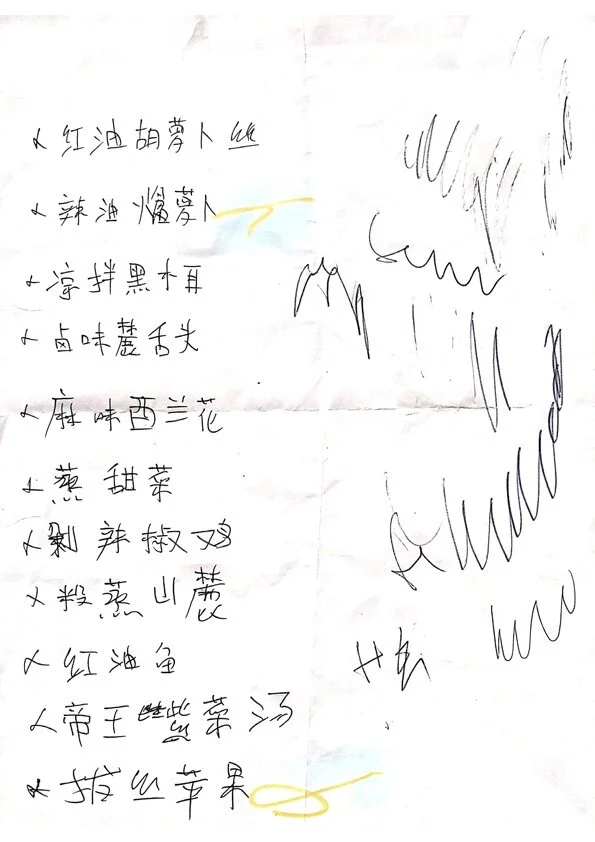 红油胡萝卜丝
辣油爆萝卜
凉拌黑木耳
卤味麓舌头
麻味西兰花
蒸甜菜
剁辣椒鸡
粉蒸山麓
红油鱼
帝王紫菜汤
拔丝苹果